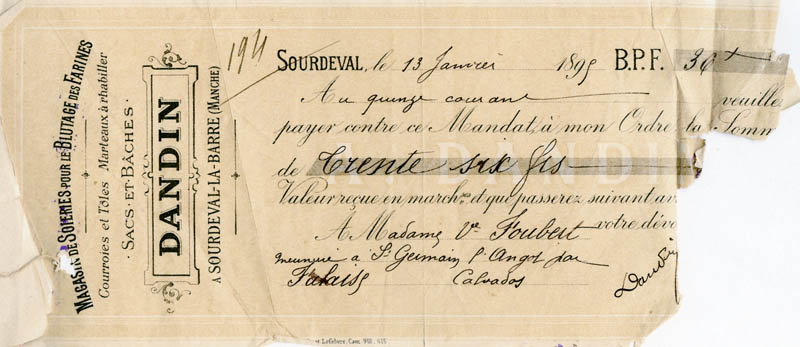 MAGASIN DE SOIERIES POUR LE BLUTAGE DES FARINES
Courroies et Tôles Marteaux à rhabiller
· SACS · ET · BÂCHES ·
DANDIN
À SOURDEVAL-LA-BARRE (MANCHE)
SOURDEVAL, le 13 Janvier 1895 B.P.F. 36
Au quinze courant veuille
payer contre ce Mandat, à mon Ordre la Somm
de Trente six frs
Valeur reçue en march.ses et que passerez suivant av
votre dévo
A Madame Ve Foubert
meunière à St Germain l'Angot par
Falaise Calvados
Dandin
Lefebvre, Caen